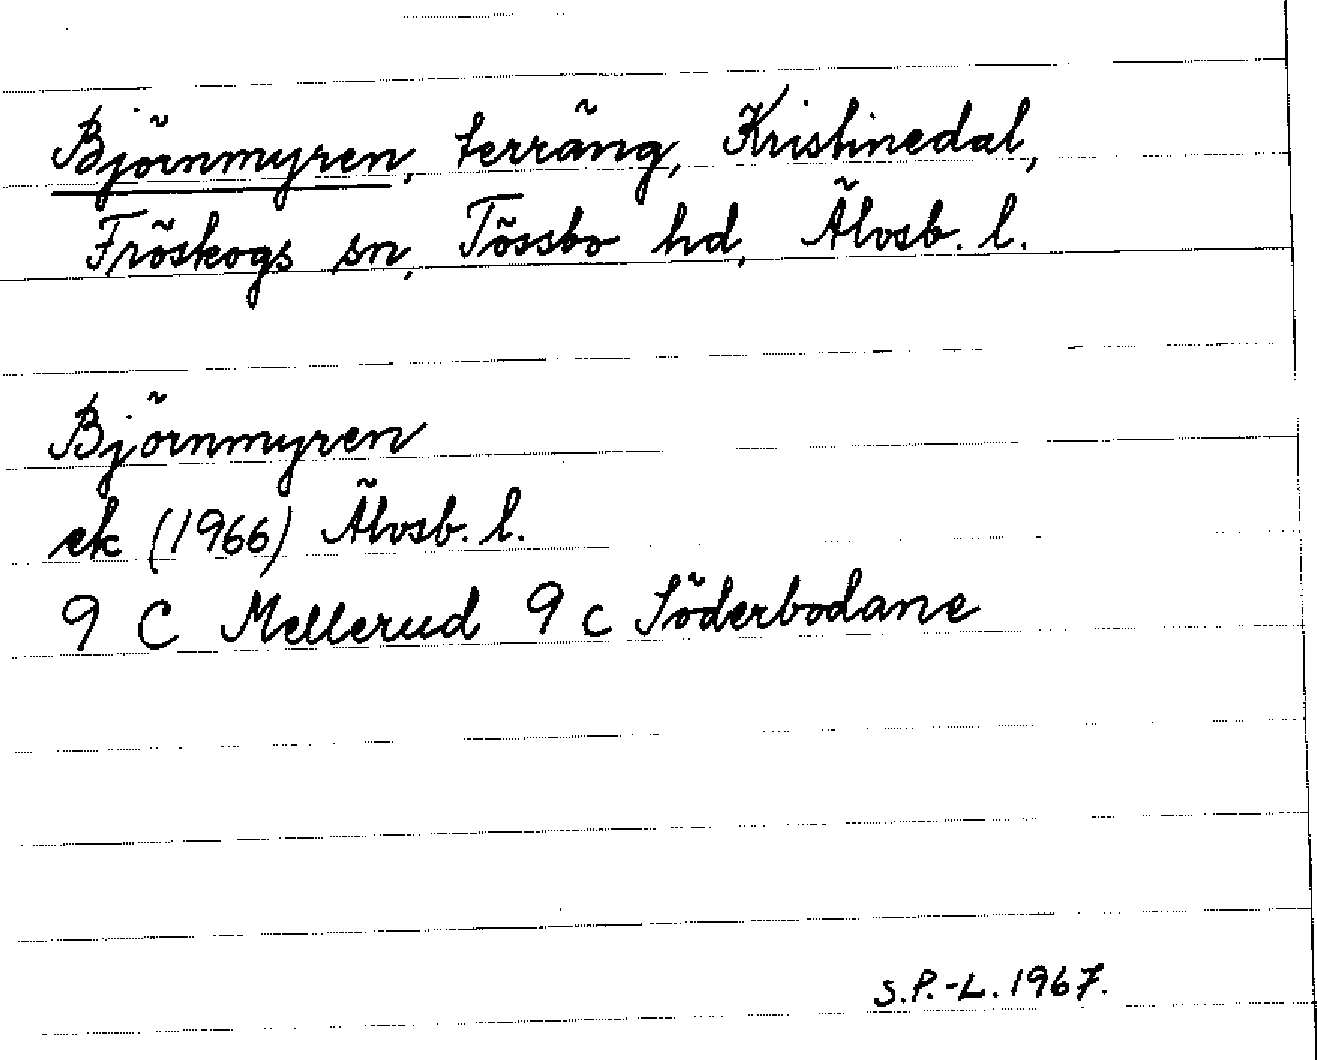 Björnmyren, terräng, Kristinedal,
Fröskogs sn, Tössbo hd, Älvsb. l.
Björnmyren
ek (1966) Älvsb. l.
9 C Mellerud 9 c Söderbodane
S.P.-L. 1967.